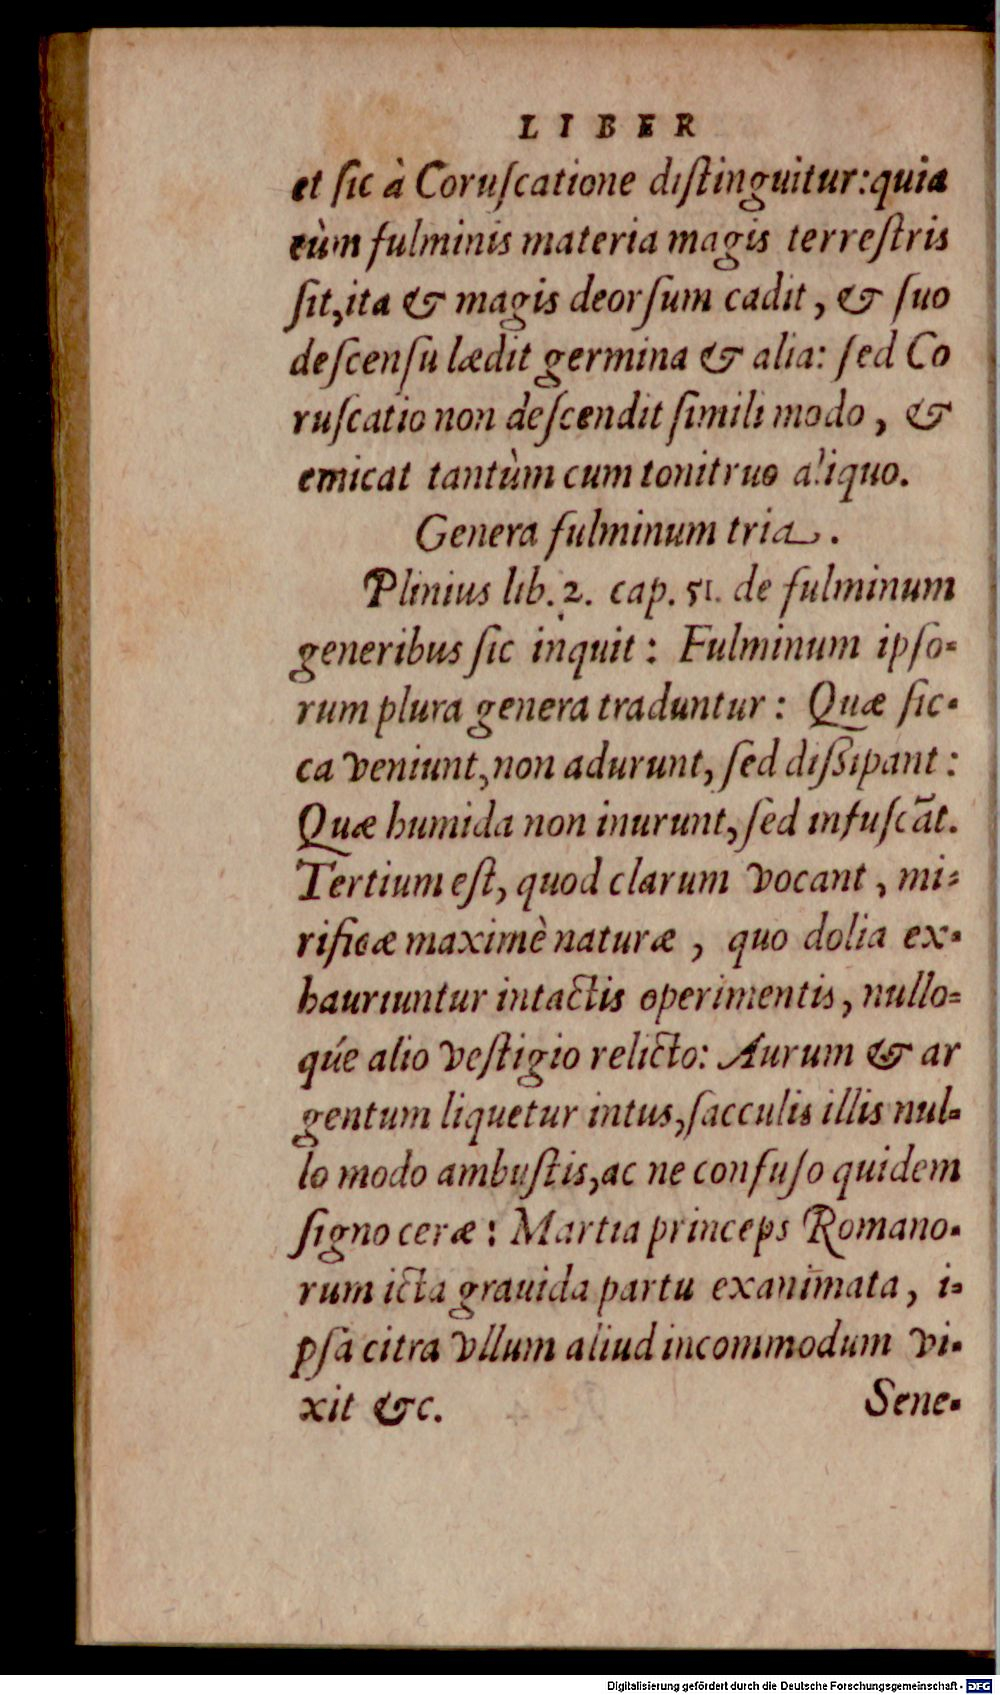 LIBER
et ſic à Coruſcatione diſtinguitur: quia
cùm fulminis materia magis terreſtris
ſit, ita & magis deorſum cadit, & ſuo
deſcenſu lædit germina & alia: ſed Co
ruſcatio non deſcendit ſimili modo, &
emicat tantùm cum tonitruo aliquo.
Genera fulminum tria.
Plinius lib. 2. cap. 51. de fulminum
generibus ſic inquit: Fulminum ipſo-
rum plura genera traduntur: Quæ ſic-
ca veniunt, non adurunt, ſed diſsipant:
Quæ humida non inurunt, ſed infuſcāt.
Tertium eſt, quod clarum vocant, mi-
rificæ maximè naturæ, quo dolia ex-
hauriuntur intactis operimentis, nullo-
qúe alio veſtigio relicto: Aurum & ar
gentum liquetur intus, ſacculis illis nul-
lo modo ambuſtis, ac ne confuſo quidem
ſigno ceræ: Martia princeps Romano-
rum icta grauida partu exanimata, i-
pſa citra vllum aliud incommodum vi-
xit &c.
Sene-
Digitalisierung gefördert durch die Deutsche Forschungsgemeinschaft - DFG